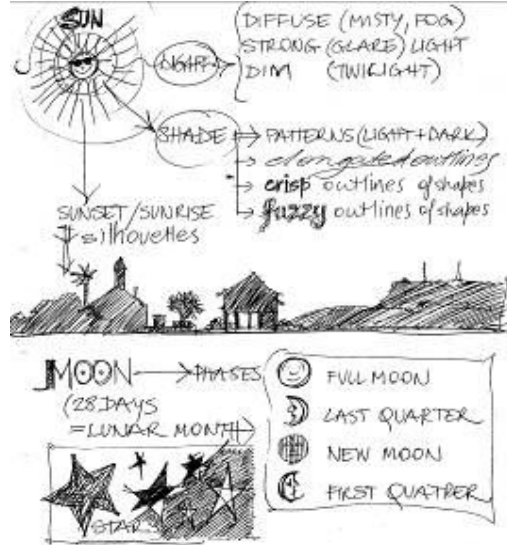 SUN
LIGHT
DIFFUSE (MISTY, FOG)
STRONG (GLARE) LIGHT
DIM (TWILIGHT)
SHADE
PATTERNS (LIGHT+DARK)
elongated outlines
crisp outlines of shapes
fuzzy outlines of shapes
SUNSET/SUNRISE
silhouettes
MOON
PHASES
(28 DAYS
=LUNAR MONTH
FULL MOON
LAST QUARTER
NEW MOON
FIRST QUATRER
STARS